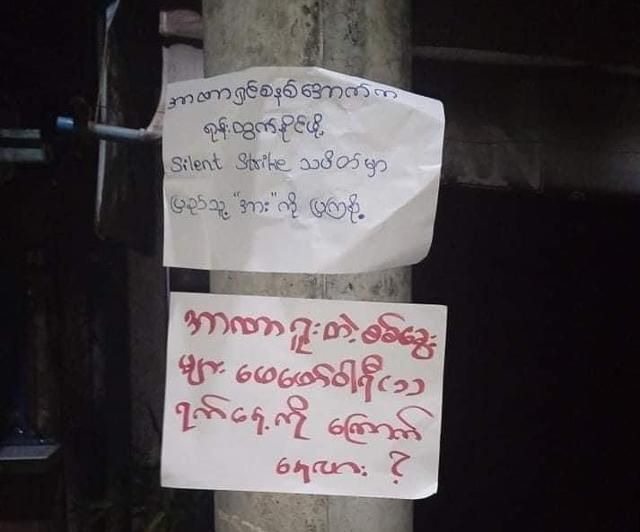 အာဏာရှင်စနစ်အောက်က
ရုန်းထွက်နိုင်ဖို့
Silent Strike သပိတ်မှာ
ပြည်သူ့ "အား" ကို ပြကြစို့
အာဏာရူးတဲ့ စစ်ခွေး
များ ဖေဖော်ဝါရီ (၁)
ရက်နေ့ကို ကြောက်
နေလား ?